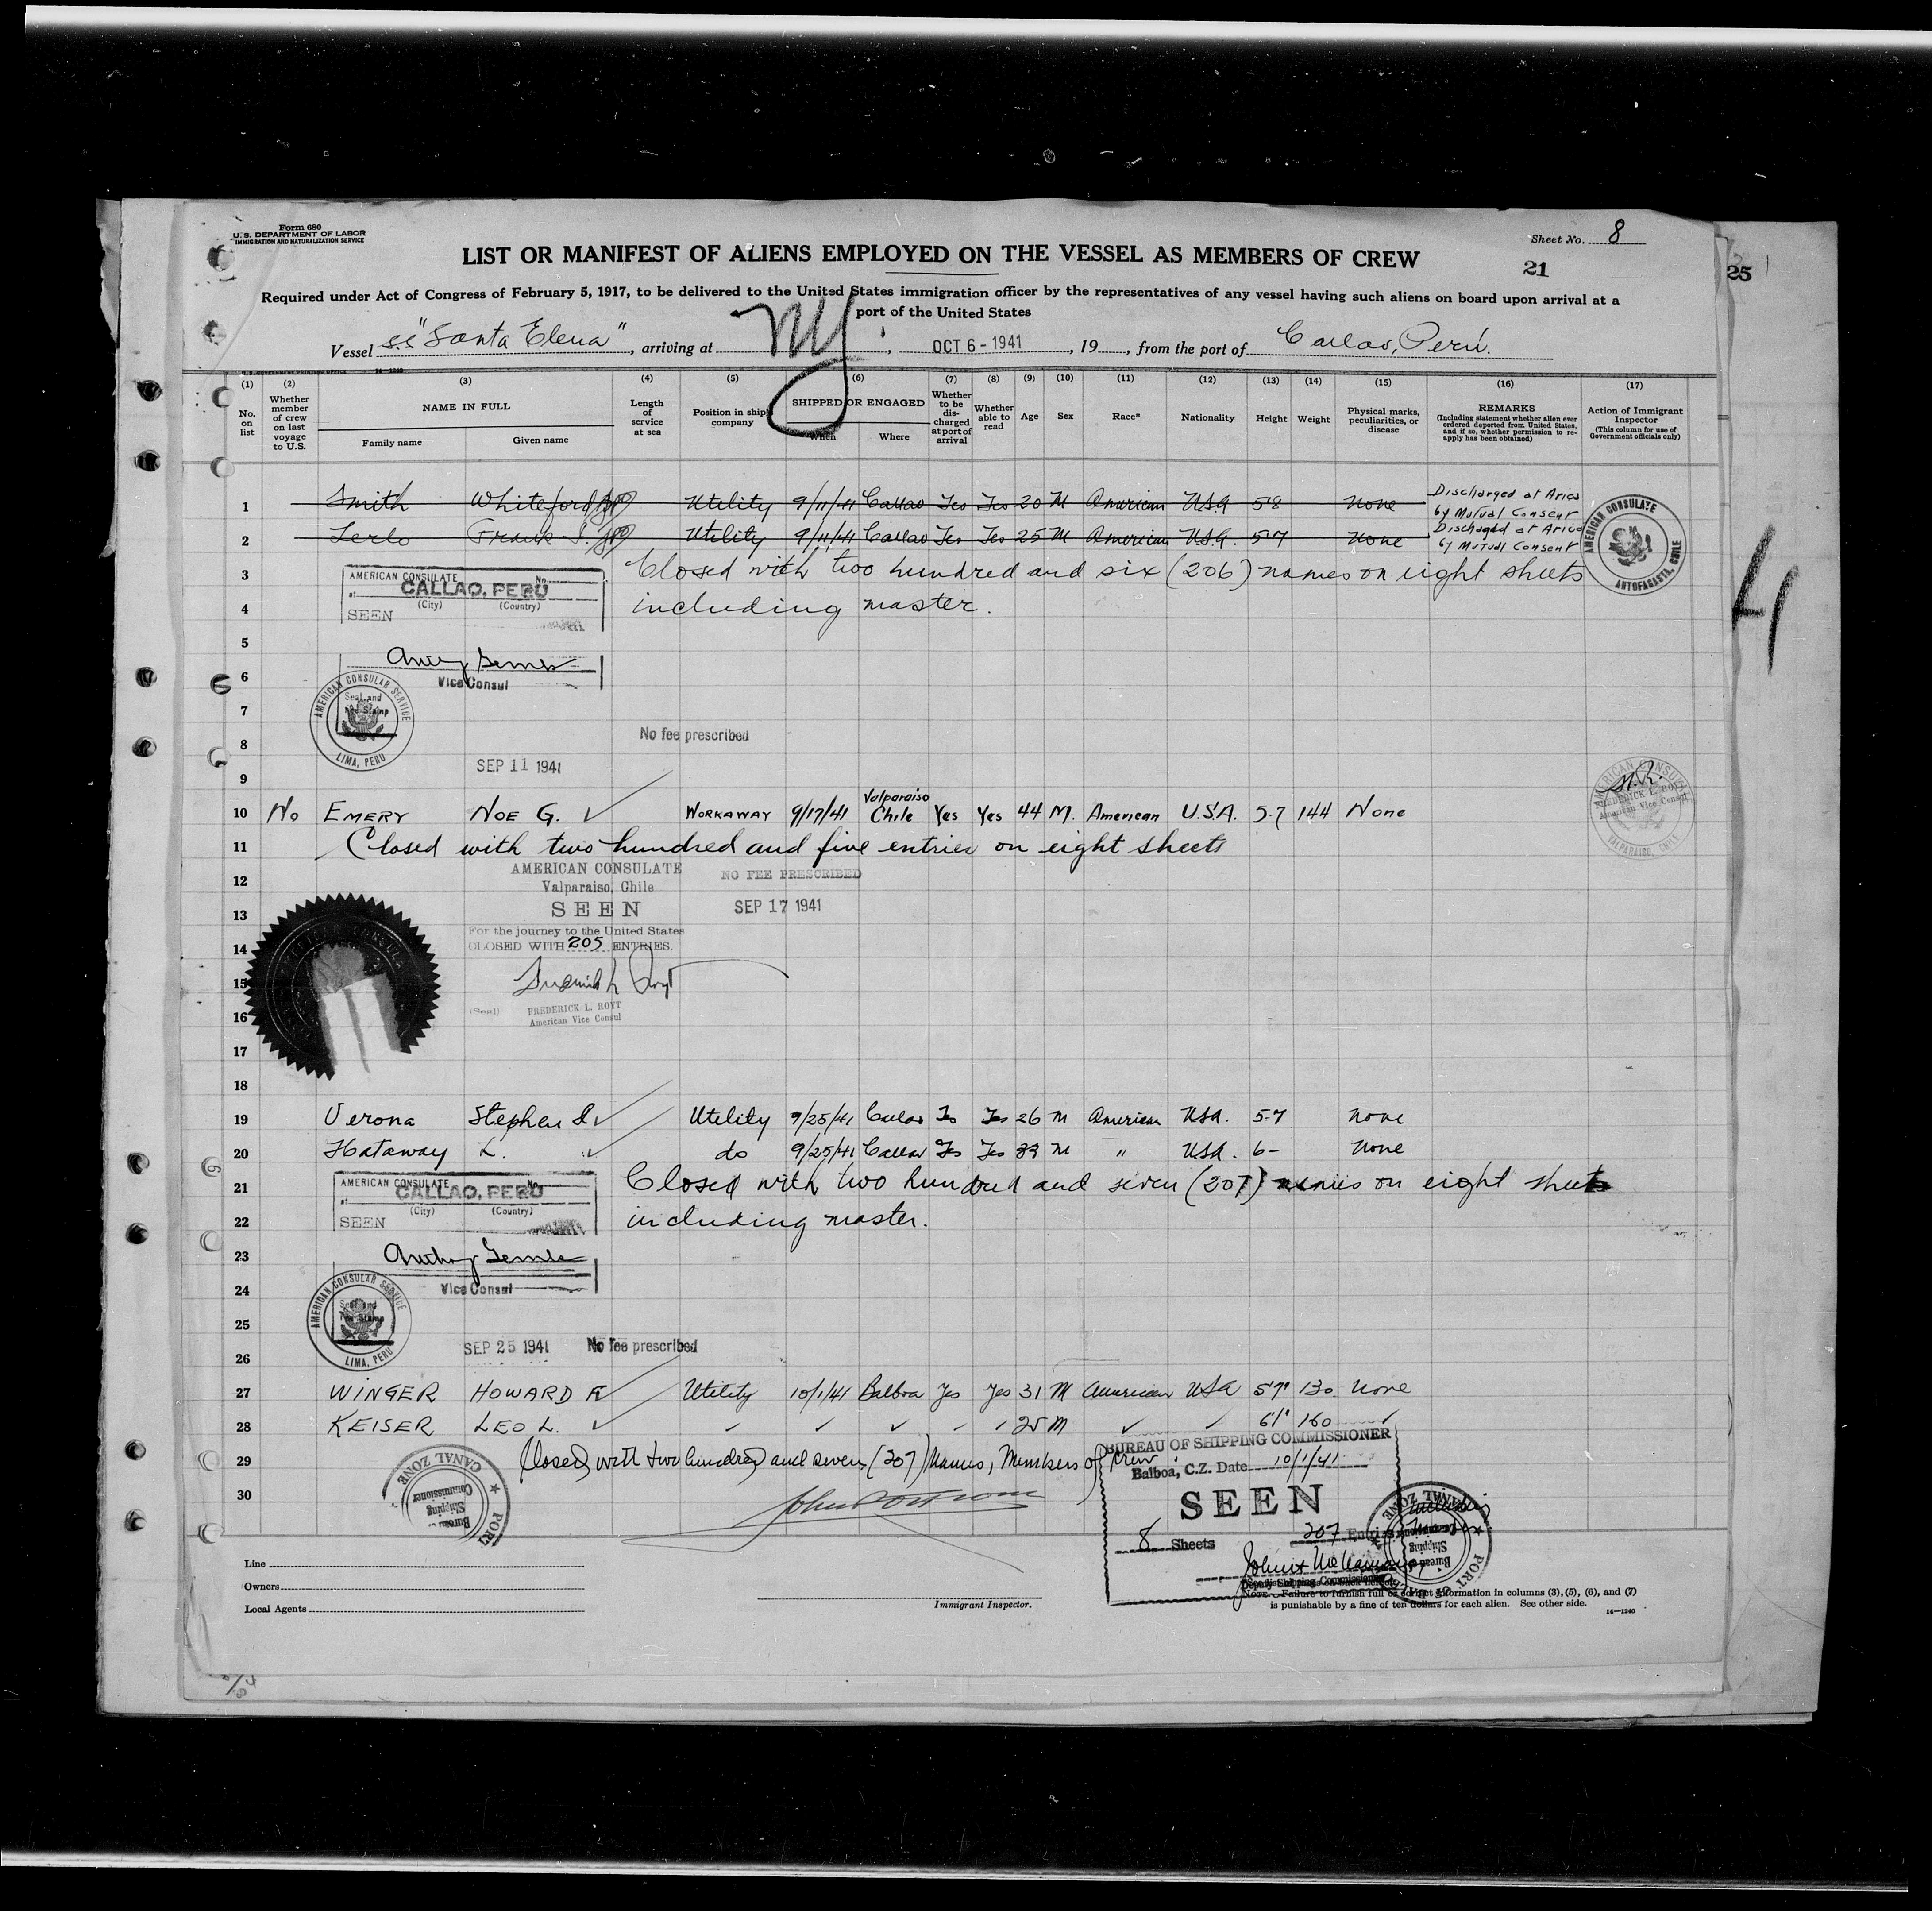 Form 680
U. S. DEPARTMENT OF LABOR
IMMIGRATION AND NATURALIZATION SERVICE
Sheet No. 8
LIST OR MANIFEST OF ALIENS EMPLOYED ON THE VESSEL AS MEMBERS OF CREW
21
25
Required under Act of Congress of February 5, 1917, to be delivered to the United States immigration officer by the representatives of any vessel having such aliens on board upon arrival at a
port of the United States
Vessel S.S "Santa Elena", arriving at NY, OCT 6 - 1941, 19, from the port of Callao, Perú.
(1) (2) (3) (4) (5) (6) (7) (8) (9) (10) (11) (12) (13) (14) (15) (16) (17)
No. on list
Whether member of crew on last voyage to U.S.
NAME IN FULL
Family name
Given name
Length of service at sea
Position in ship's company
SHIPPED OR ENGAGED
When
Where
Whether to be discharged at port of arrival
Whether able to read
Age
Sex
Race*
Nationality
Height
Weight
Physical marks, peculiarities, or disease
REMARKS
(Including statement whether alien ever ordered deported from United States, and if so, whether permission to reapply has been obtained)
Action of Immigrant Inspector
(This column for use of Government officials only)
1 Smith Whiteford Utility 9/11/41 Callao Yes Yes 20 M American USA 5-8 None Discharged at Arica by Mutual Consent
2 Frank J. Utility 9/11/41 Callao Yes Yes 25 M American U.S.A. 5-7 None Discharged at Arica by Mutual Consent
AMERICAN CONSULATE
ANTOFAGASTA, CHILE
3 Closed with two hundred and six (206) names on eight sheets
4 including master.
AMERICAN CONSULATE No.
at CALLAO, PERU
(City) (Country)
SEEN
5
6
Vice Consul
AMERICAN CONSULAR SERVICE
Seal and
Fee Stamp
LIMA, PERU
7
8 No fee prescribed
SEP 11 1941
9
10 No EMERY NOE G. WORKAWAY 9/17/41 Valparaiso Chile Yes Yes 44 M. American U.S.A. 5-7 144 None
AMERICAN CONSULATE
FREDERICK L. ROYT
American Vice Consul
VALPARAISO, CHILE
11 Closed with two hundred and five entries on eight sheets
12 AMERICAN CONSULATE NO FEE PRESCRIBED
Valparaiso, Chile
13 SEEN SEP 17 1941
For the journey to the United States
14 CLOSED WITH 205 ENTRIES.
15
16 (Seal) FREDERICK L. ROYT
American Vice Consul
17
18
19 Verona Stephen Utility 9/25/41 Callao Yes Yes 26 M American USA. 5-7 None
20 Hataway L. do 9/25/41 Callao Yes Yes M " USA. 6- None
21 Closed with two hundred and seven (207) names on eight sheets
22 including master.
AMERICAN CONSULATE No.
at CALLAO, PERU
(City) (Country)
SEEN
23
24 Vice Consul
AMERICAN CONSULAR SERVICE
Seal and
Fee Stamp
LIMA, PERU
25
SEP 25 1941 No fee prescribed
26
27 WINGER HOWARD Utility 10/1/41 Balboa Yes Yes 31 M American USA 5'7" 130 None
28 KEISER LEO L. 25 M 6'1" 160
29 Closed with two hundred and seven (207) Names, Members of Crew
30
CANAL ZONE
Bureau of Shipping Commissioner
PORT
BUREAU OF SHIPPING COMMISSIONER
Balboa, C.Z. Date 10/1/41
SEEN
8 Sheets 207 Entries
Deputy Shipping Commissioner
Line
Owners
Local Agents
Immigrant Inspector.
NOTE.—Failure to furnish full or correct information in columns (3), (5), (6), and (7)
is punishable by a fine of ten dollars for each alien. See other side.
14—1240